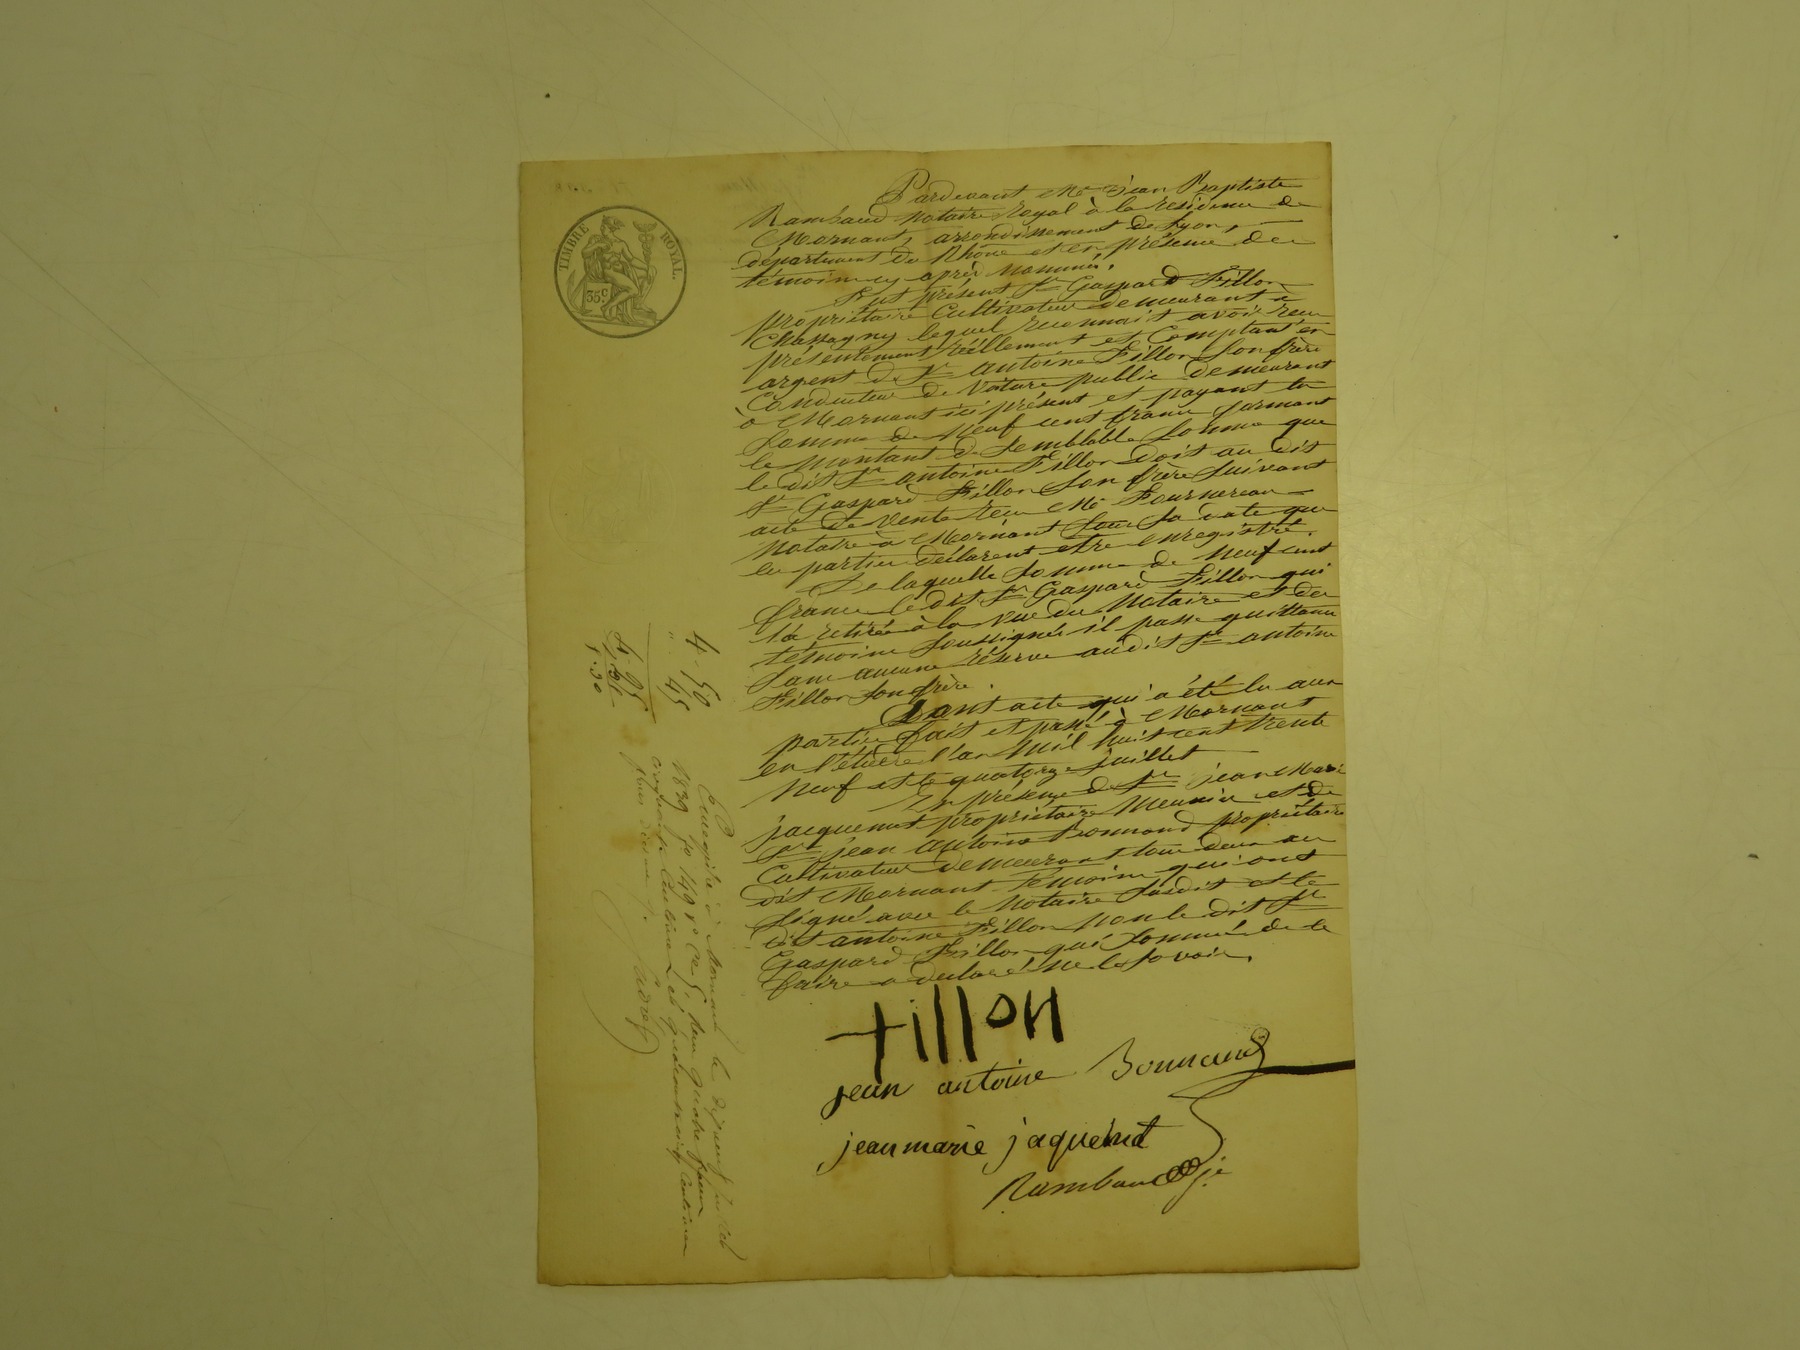 TIMBRE ROYAL.
35c
Pardevant Me Jean Baptiste
Rambaud Notaire Royal à la résidence de
Mornant, arrondissement de Lyon,
département du Rhône et en présence des
témoins cy après nommés.
Fut présent Sr Gaspard Fillon
propriétaire Cultivateur demeurant à
Chassagny lequel reconnait avoir reçu
présentement réellement et Comptant en
argent de Sr antoine Fillon Son frère
Conducteur de Voiture public demeurant
à Mornant ici présent et payant la
Somme de Neuf cent francs formant
le montant de Semblable Somme que
le dit Sr antoine Fillon doit au dit
Sr Gaspard Fillon Son frère Suivant
acte de vente reçu Me Fournereau
Notaire à Mornant Sous Sa date que
les parties déclarent être enregistré.
De laquelle Somme de Neuf cent
francs le dit Sr Gaspard Fillon qui
l'a retirée à la vue du Notaire et des
témoins Soussignés il passe quittance
Sans aucune réserve audit Sr antoine
Fillon Son frère.
Dont acte qui a été lu aux
parties fait et passé à Mornant
en l'étude l'an Mil huit cent trente
Neuf et le quatorze juillet
En présence de Sr jean Marie
jacquemet propriétaire Meunier et de
Sr jean antoine Bonnand propriétaire
Cultivateur demeurant tous deux au
dit Mornant Témoins qui ont
Signé avec le Notaire Susdit et le
dit antoine Fillon Non le dit Sr
Gaspard Fillon qui Sommé de le
faire a déclaré ne le Savoir.
fillon
jean antoine Bonnand
jean marie jaquemet
Rambaud
4.50
" 45
4.95
Enregistré à Mornant le dix neuf juillet
1839 fo 149 vo Ce 5, Reçu quatre francs
cinquante Centimes et quarante cinq Centimes
pour dixme